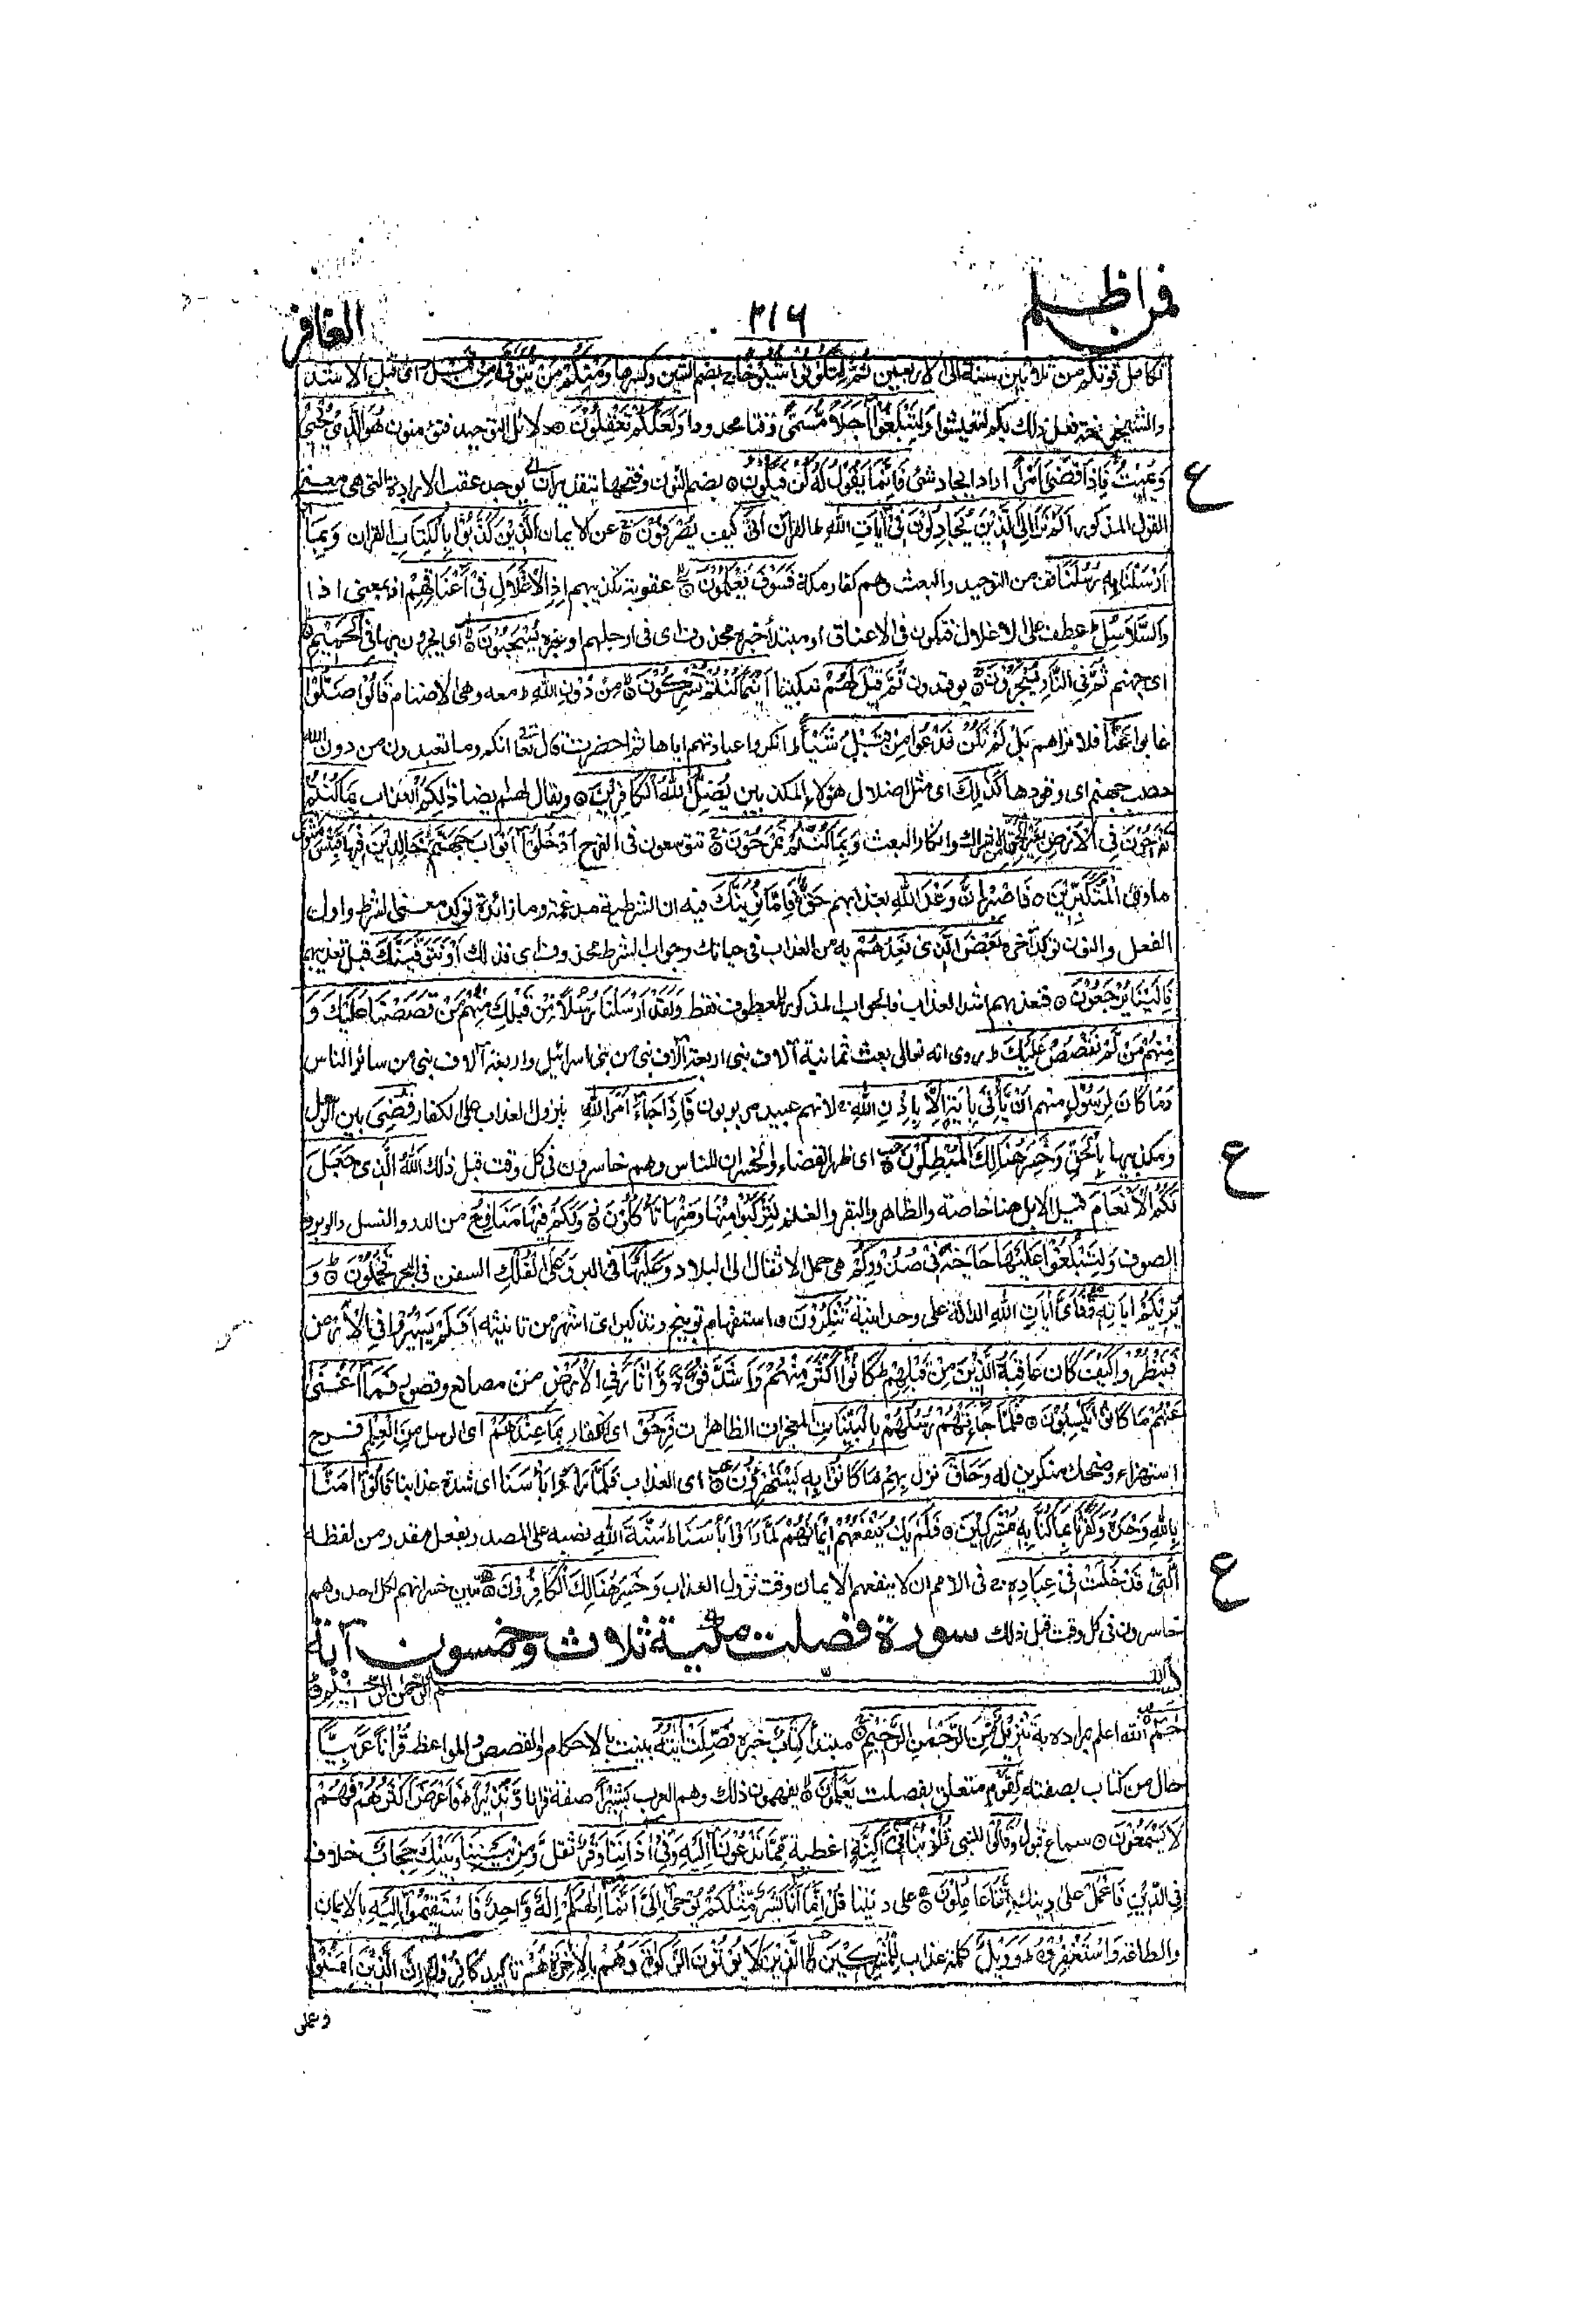 فمن اظلم
٣١٦
الغافر
تكامل قوتكم من ثلاثين سنة الى الاربعين ثُمَّ لِتَكُوْنُوْا شُيُوْخًا بضم الشين وكسرها وَمِنْكُمْ مَنْ يُتَوَفّٰى مِنْ قَبْلُ اى قبل الاشد
والشيخوخة فعل ذلك بكم لتعيشوا وَلِتَبْلُغُوْا اَجَلًا مُّسَمًّى وقتا محدودا وَلَعَلَّكُمْ تَعْقِلُوْنَ ○ دلائل التوحيد فتؤمنون هُوَ الَّذِىْ يُحْيِىْ
وَيُمِيْتُ فَاِذَا قَضٰى اَمْرًا اراد ايجاد شئ فَاِنَّمَا يَقُوْلُ لَهٗ كُنْ فَيَكُوْنُ ○ بضم النون وفتحها بتقدير ان اى يوجد عقب الارادة التى هى معنى
ع
القول المذكور اَلَمْ تَرَ اِلَى الَّذِيْنَ يُجَادِلُوْنَ فِىْ اٰيَاتِ اللّٰهِ القران اَنّٰى كيف يُصْرَفُوْنَ عن الايمان الَّذِيْنَ كَذَّبُوْا بِالْكِتَابِ القران وَبِمَا
اَرْسَلْنَا بِهٖ رُسُلَنَا من التوحيد والبعث وهم كفار مكة فَسَوْفَ يَعْلَمُوْنَ عقوبة تكذيبهم اِذِ الْاَغْلَالُ فِىْ اَعْنَاقِهِمْ اذ بمعنى اذا
وَالسَّلَاسِلُ عطف على الاغلال فتكون فى الاعناق او مبتدأ خبره محذوف اى فى ارجلهم او خبره يُسْحَبُوْنَ اى يجرون بها فِى الْحَمِيْمِ
اى جهنم ثُمَّ فِى النَّارِ يُسْجَرُوْنَ يوقدون ثُمَّ قِيْلَ لَهُمْ تبكيتا اَيْنَمَا كُنْتُمْ تُشْرِكُوْنَ مِنْ دُوْنِ اللّٰهِ معه وهى الاصنام قَالُوْا ضَلُّوْا
غابوا عَنَّا فلا نراهم بَلْ لَمْ نَكُنْ نَدْعُوْا مِنْ قَبْلُ شَيْئًا انكروا عبادتهم اياها ثم احضرت قال تعا انكم وما تعبدون من دون الله
حصب جهنم اى وقودها كَذٰلِكَ اى مثل اضلال هؤلاء المكذبين يُضِلُّ اللّٰهُ الْكَافِرِيْنَ ○ ويقال لهم ايضا ذٰلِكُمْ العذاب بِمَا كُنْتُمْ
تَفْرَحُوْنَ فِى الْاَرْضِ بِغَيْرِ الْحَقِّ من الاشراك وانكار البعث وَبِمَا كُنْتُمْ تَمْرَحُوْنَ تتوسعون فى الفرح اُدْخُلُوْا اَبْوَابَ جَهَنَّمَ خَالِدِيْنَ فِيْهَا فَبِئْسَ مَثْوَى
ماوى الْمُتَكَبِّرِيْنَ ○ فَاصْبِرْ اِنَّ وَعْدَ اللّٰهِ بعذابهم حَقٌّ فَاِمَّا نُرِيَنَّكَ فيه ان الشرطية مدغمة وما زائدة توكد معنى الشرط اول
الفعل والنون توكد اخره بَعْضَ الَّذِىْ نَعِدُهُمْ به من العذاب فى حياتك وجواب الشرط محذوف اى فذلك اَوْ نَتَوَفَّيَنَّكَ قبل تعذيبهم
فَاِلَيْنَا يُرْجَعُوْنَ ○ فنعذبهم اشد العذاب فالجواب المذكور للمعطوف فقط وَلَقَدْ اَرْسَلْنَا رُسُلًا مِّنْ قَبْلِكَ مِنْهُمْ مَّنْ قَصَصْنَا عَلَيْكَ وَ
مِنْهُمْ مَّنْ لَّمْ نَقْصُصْ عَلَيْكَ روى انه تعالى بعث ثمانية آلاف نبى اربعة آلاف نبى من بنى اسرائيل واربعة آلاف نبى من سائر الناس
وَمَا كَانَ لِرَسُوْلٍ منهم اَنْ يَّأْتِىَ بِاٰيَةٍ اِلَّا بِاِذْنِ اللّٰهِ لانهم عبيد مربوبون فَاِذَا جَآءَ اَمْرُ اللّٰهِ بنزول العذاب على الكفار قُضِىَ بين الرسل
ومكذبيها بِالْحَقِّ وَخَسِرَ هُنَالِكَ الْمُبْطِلُوْنَ اى ظهر القضاء والخسران للناس وهم خاسرون فى كل وقت قبل ذلك اَللّٰهُ الَّذِىْ جَعَلَ
ع
لَكُمُ الْاَنْعَامَ قيل الابل هنا خاصة والظاهر والبقر والغنم لِتَرْكَبُوْا مِنْهَا وَمِنْهَا تَأْكُلُوْنَ وَلَكُمْ فِيْهَا مَنَافِعُ من الدر والنسل والوبر و
الصوف وَلِتَبْلُغُوْا عَلَيْهَا حَاجَةً فِىْ صُدُوْرِكُمْ هى حمل الاثقال الى البلاد وَعَلَيْهَا فى البر وَعَلَى الْفُلْكِ السفن فى البحر تُحْمَلُوْنَ وَ
يُرِيْكُمْ اٰيَاتِهٖ فَاَىَّ اٰيَاتِ اللّٰهِ الدالة على وحدانيته تُنْكِرُوْنَ ○ استفهام توبيخ وتذكير اى اشهر من تانيثه اَفَلَمْ يَسِيْرُوْا فِى الْاَرْضِ
فَيَنْظُرُوْا كَيْفَ كَانَ عَاقِبَةُ الَّذِيْنَ مِنْ قَبْلِهِمْ كَانُوْا اَكْثَرَ مِنْهُمْ وَاَشَدَّ قُوَّةً وَّاٰثَارًا فِى الْاَرْضِ من مصانع وقصور فَمَا اَغْنٰى
عَنْهُمْ مَّا كَانُوْا يَكْسِبُوْنَ ○ فَلَمَّا جَآءَتْهُمْ رُسُلُهُمْ بِالْبَيِّنَاتِ المعجزات الظاهرات فَرِحُوْا اى الكفار بِمَا عِنْدَهُمْ اى الرسل مِنَ الْعِلْمِ فرح
استهزاء وضحك منكرين له وَحَاقَ نزل بِهِمْ مَّا كَانُوْا بِهٖ يَسْتَهْزِءُوْنَ اى العذاب فَلَمَّا رَاَوْا بَأْسَنَا اى شدة عذابنا قَالُوْا اٰمَنَّا
بِاللّٰهِ وَحْدَهٗ وَكَفَرْنَا بِمَا كُنَّا بِهٖ مُشْرِكِيْنَ ○ فَلَمْ يَكُ يَنْفَعُهُمْ اِيْمَانُهُمْ لَمَّا رَاَوْا بَأْسَنَا سُنَّةَ اللّٰهِ نصبه على المصدر بفعل مقدر من لفظه
الَّتِىْ قَدْ خَلَتْ فِىْ عِبَادِهٖ فى الامم ان لا ينفعهم الايمان وقت نزول العذاب وَخَسِرَ هُنَالِكَ الْكَافِرُوْنَ تبين خسرانهم لكل احد وهم
ع
خاسرون فى كل وقت قبل ذلك سورة فصلت مكية ثلاث وخمسون آية
بسم الله الرحمن الرحيم
حٰمٓ الله اعلم بمراده به تَنْزِيْلٌ مِّنَ الرَّحْمٰنِ الرَّحِيْمِ مبتدأ كِتَابٌ خبره فُصِّلَتْ اٰيٰتُهٗ بينت بالاحكام والقصص والمواعظ قُرْاٰنًا عَرَبِيًّا
حال من كتاب بصفته لِقَوْمٍ متعلق بفصلت يَعْلَمُوْنَ يفهمون ذلك وهم العرب بَشِيْرًا صفة قرانا وَّنَذِيْرًا فَاَعْرَضَ اَكْثَرُهُمْ فَهُمْ
لَا يَسْمَعُوْنَ ○ سماع قبول وَقَالُوْا للنبى قُلُوْبُنَا فِىْ اَكِنَّةٍ اغطية مِّمَّا تَدْعُوْنَا اِلَيْهِ وَفِىْ اٰذَانِنَا وَقْرٌ ثقل وَّمِنْ بَيْنِنَا وَبَيْنِكَ حِجَابٌ خلاف
فى الدين فَاعْمَلْ على دينك اِنَّنَا عَامِلُوْنَ على ديننا قُلْ اِنَّمَا اَنَا بَشَرٌ مِّثْلُكُمْ يُوْحٰى اِلَىَّ اَنَّمَا اِلٰهُكُمْ اِلٰهٌ وَّاحِدٌ فَاسْتَقِيْمُوْا اِلَيْهِ بالايمان
والطاعة وَاسْتَغْفِرُوْهُ وَوَيْلٌ كلمة عذاب لِّلْمُشْرِكِيْنَ الَّذِيْنَ لَا يُؤْتُوْنَ الزَّكٰوةَ وَهُمْ بِالْاٰخِرَةِ هُمْ تاكيد كَافِرُوْنَ اِنَّ الَّذِيْنَ اٰمَنُوْا
وعملوا